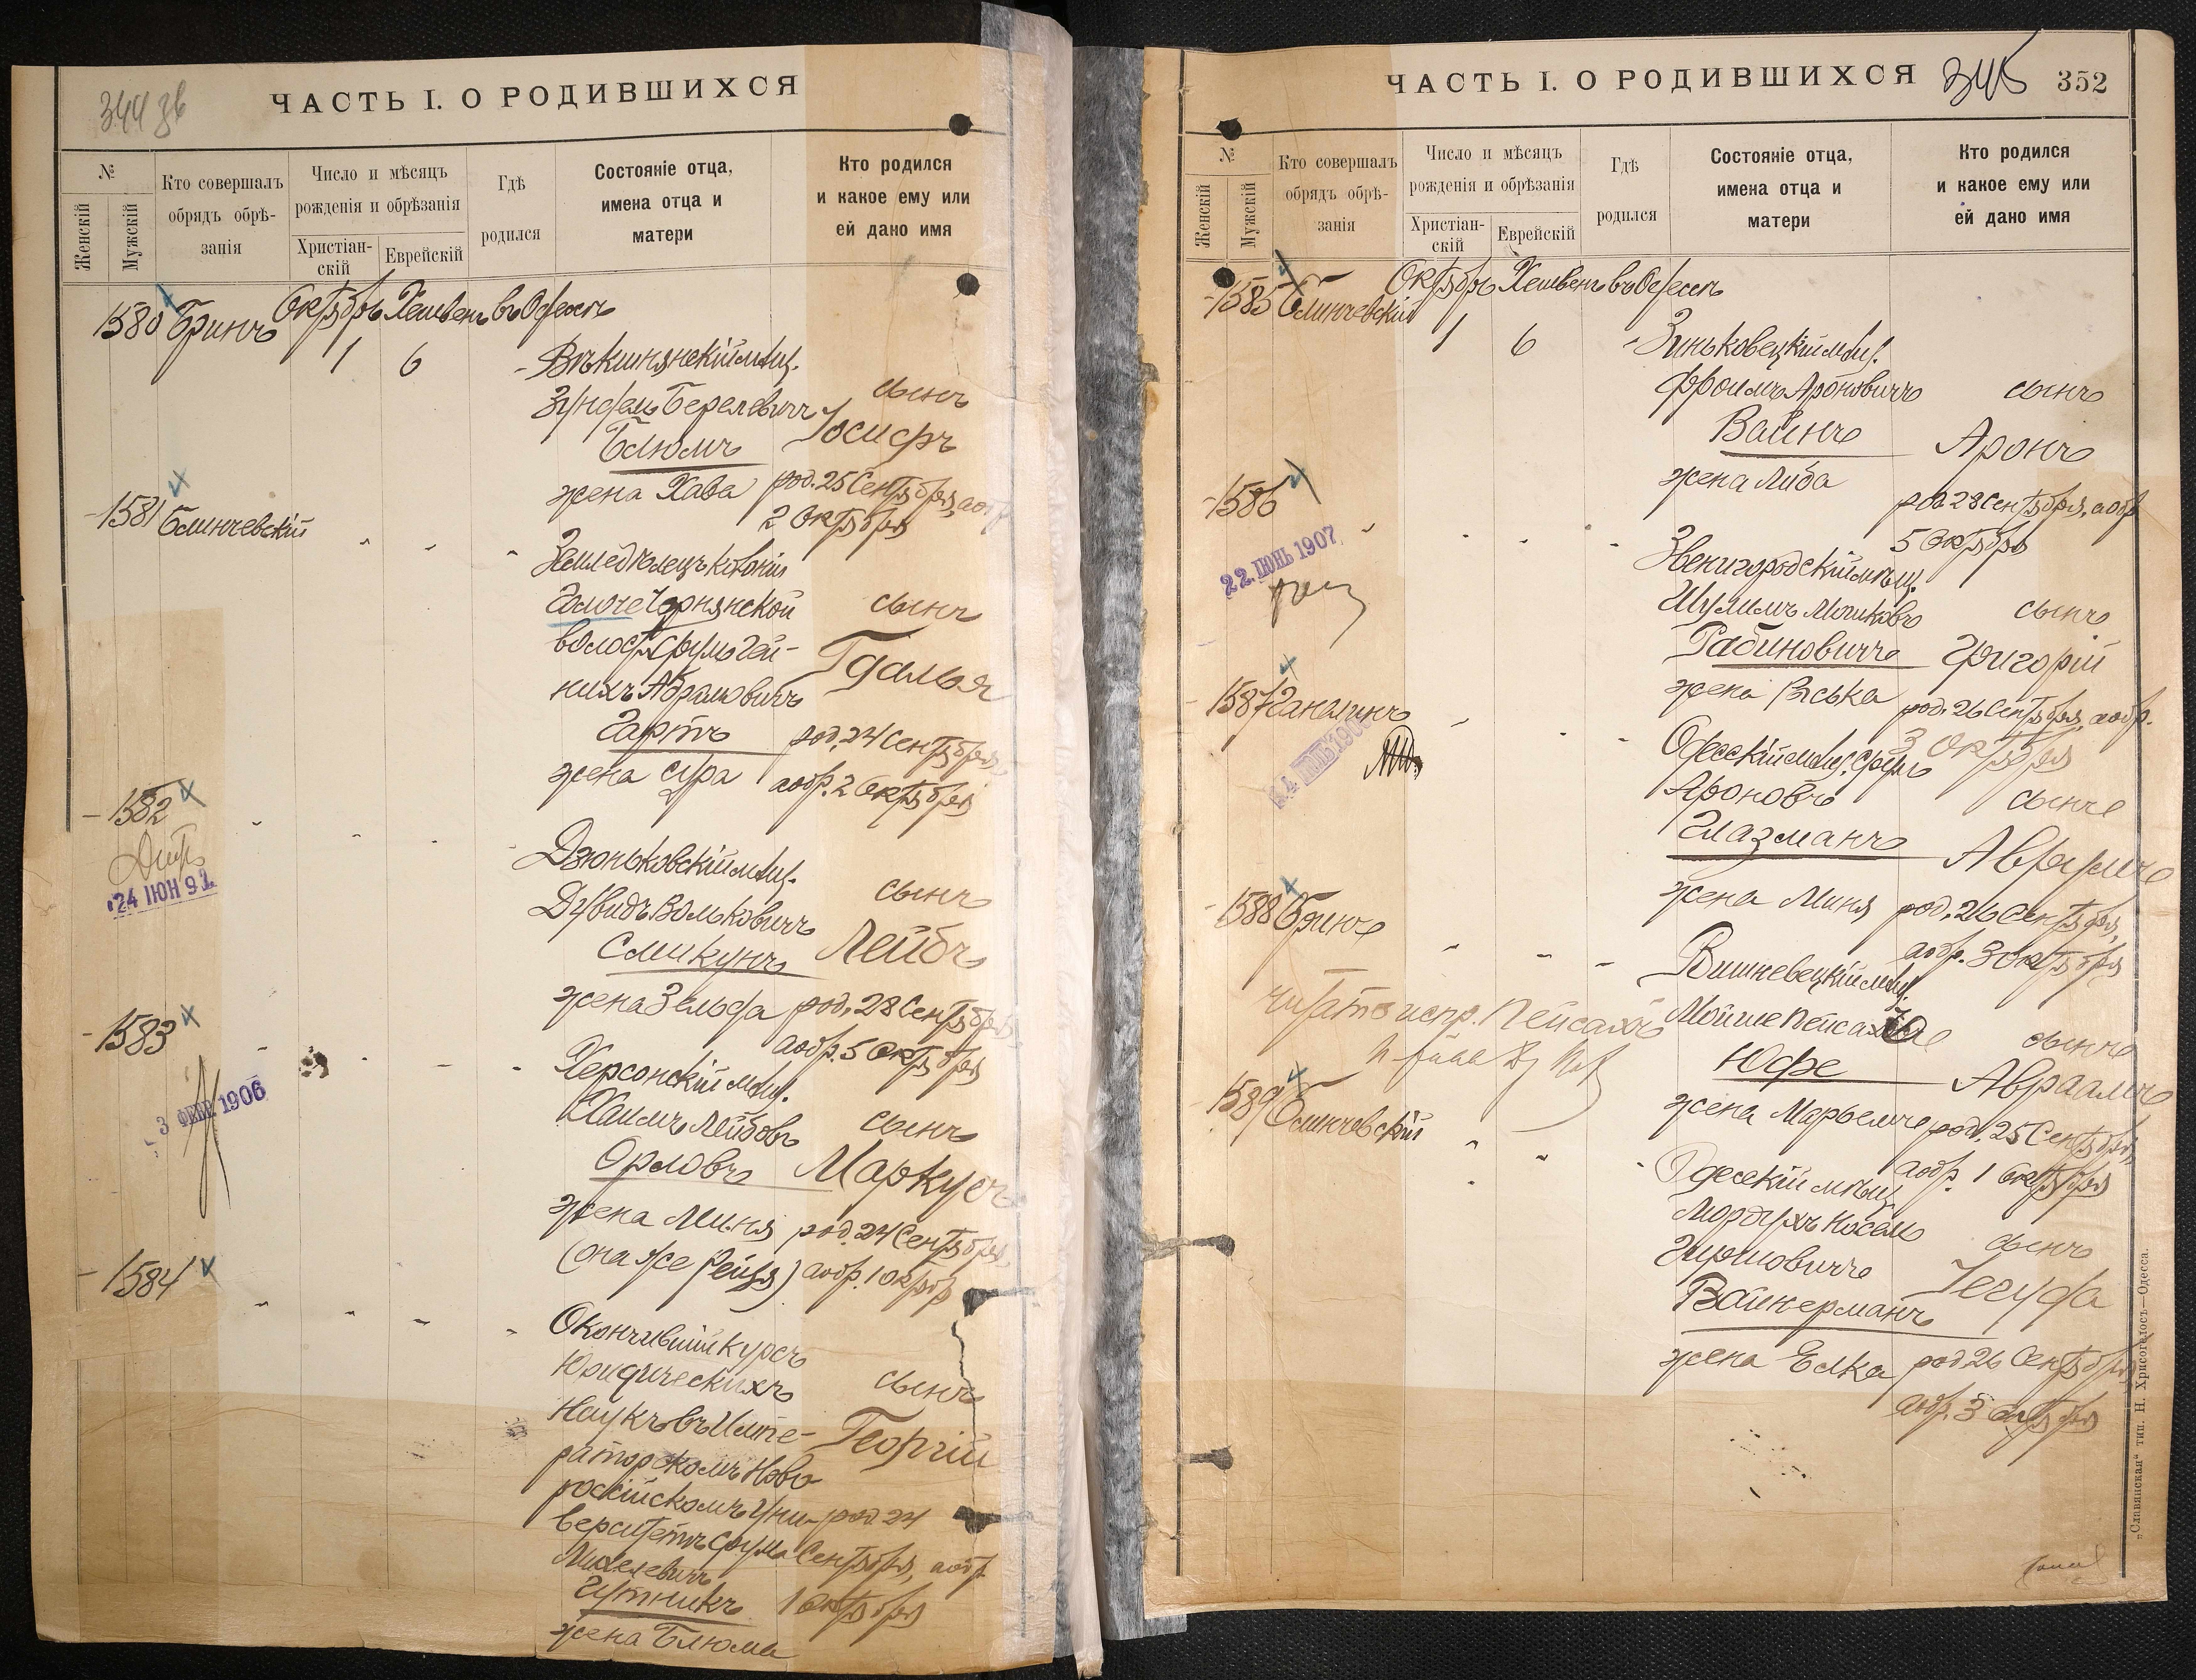 344 зв
ЧАСТЬ I. О РОДИВШИХСЯ
№
Женскій
Мужскій
Кто совершалъ
обрядъ обрѣ-
занія
Число и мѣсяцъ
рожденія и обрѣзанія
Христіан-
скій
Еврейскій
Гдѣ
родился
Состояніе отца,
имена отца и
матери
Кто родился
и какое ему или
ей дано имя
1580 Бринъ Октябрь Хешвенъ въ Одессѣ
1 6
мѣщ.
Берелевичъ
сынъ
Блюмъ
Іосифъ
жена Хава
род. 25 Сентября, а обр
2 Октября
1581 Блинчевскій
Земледѣлецъ колоніи
сынъ
Абрамовичъ
Гдалья
Гартъ
род. 24 Сентября,
жена Сура
а обр. 2 Октября
1582
24 ІЮН 91
Дзюньковскій мѣщ.
Дувидъ Вольковичъ
сынъ
Смикунъ
Лейбъ
жена Зельда
род. 28 Сентября
а обр. 5 Октября
1583
3 ФЕВР 1906
Херсонскій мѣщ.
Хаимъ Лейбовъ
сынъ
Орловъ
Маркусъ
жена Миня
род. 24 Сентября,
(она же Рейзя)
а обр. 1 Октябр
1584
Окончившій курсъ
Юридическихъ
сынъ
Наукъ въ Импе-
Георгій
раторскомъ Ново
россійскомъ Уни-
род. 24
верситетѣ Срумъ
Сентября, а обр
Михелевичъ
Гутникъ
1 Октября
жена Блюма
ЧАСТЬ I. О РОДИВШИХСЯ
345
352
№
Женскій
Мужскій
Кто совершалъ
обрядъ обрѣ-
занія
Число и мѣсяцъ
рожденія и обрѣзанія
Христіан-
скій
Еврейскій
Гдѣ
родился
Состояніе отца,
имена отца и
матери
Кто родился
и какое ему или
ей дано имя
1585 Блинчевскій Октябрь Хешвенъ въ Одессѣ
1 6
Зиньковецкій мѣщ.
Фроимъ Ароновичъ
сынъ
Вайнъ
Аронъ
жена Либа
род. 28 Сентября, а обр
5 Октября
1586
22 ІЮНЬ 1907
Звенигородскій мѣщ.
Шулимъ Мошковъ
сынъ
Рабиновичъ
Григорій
жена Ръська
род. 26 Сентября, а обр.
3 Октября
1587 Ганалинъ
Одесскій мѣщ. Срулъ
Ароновъ
сынъ
Глазманъ
Аврумъ
жена Миня
род. 26 Сентября,
а обр. 3 Октября
1588 Бринъ
Вишневецкій мѣщ.
читать испр. Пейсахъ
Мойше
сынъ
Юфе
Авраамъ
жена Марьемъ
род. 25 Сентября,
а обр. 1 Октября
1589 Блинчевскій
Одесскій мѣщ
Мордухъ Носемъ
сынъ
Гершовичъ
Іегуда
Вайнерманъ
жена Елка
род. 26 Сентября
а обр. 3 Октября
„Славянская“ тип. Н. Хрисогелосъ—Одесса.